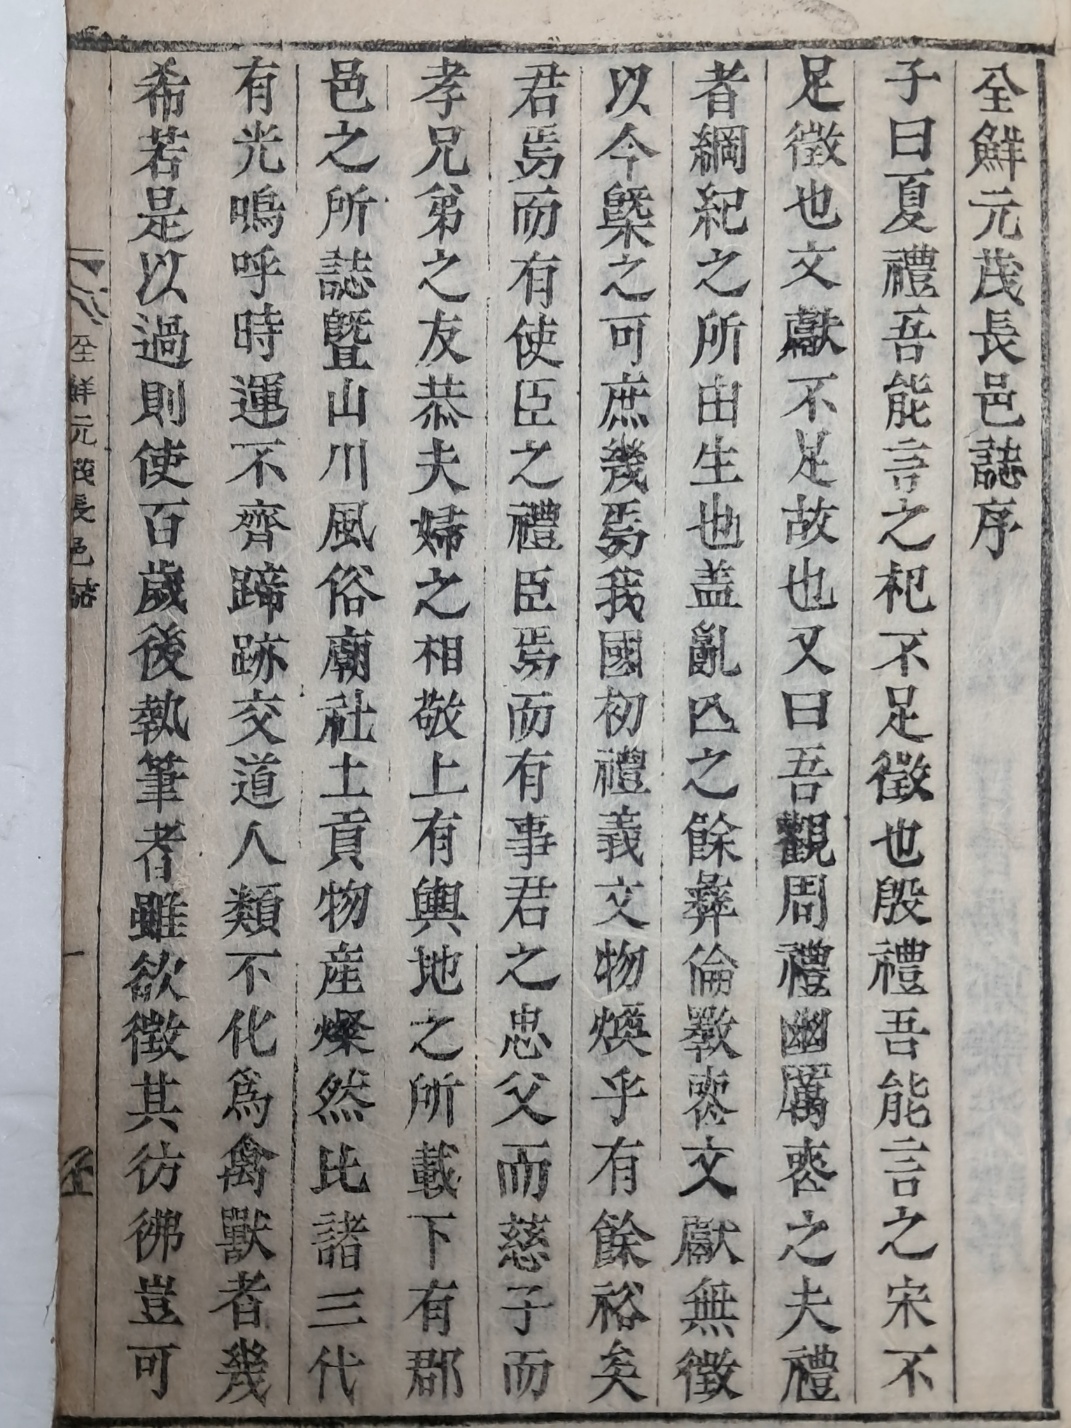 全鮮元茂長邑誌序
子曰夏禮吾能言之祀不足徵也殷禮吾能言之宋不
足徵也文獻不足故也又曰吾觀周禮幽厲喪之夫禮
者綱紀之所由生也盖亂亾之餘彛倫斁喪文獻無徵
以今槩之可庶幾焉我國初禮義文物煥乎有餘裕矣
君焉而有使臣之禮臣焉而有事君之忠父而慈子而
孝兄弟之友恭夫婦之相敬上有輿地之所載下有郡
邑之所誌曁山川風俗廟社土貢物産燦然比諸三代
有光嗚呼時運不齊蹄跡交道人類不化爲禽獸者幾
希若是以過則使百歲後執筆者雖欲徵其彷彿豈可
全鮮元茂長邑誌
一